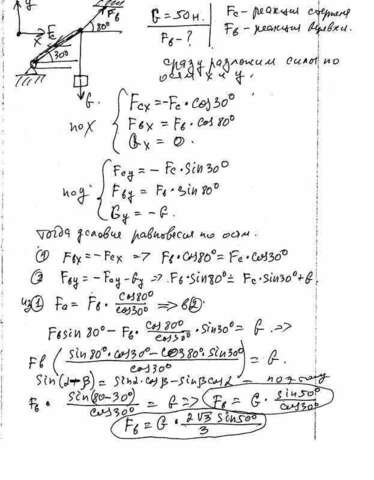 y
x
Fc
Fв
80°
30°
G.
G = 50н.
Fв - ?
Fc - реакция стержня
Fв - реакция верёвки.
сразу разложим силы по осям x и y.
по x { Fcx = -Fc · cos30°
Fвx = Fв · cos80°
Gx = 0.
по y { Fcy = - Fc · sin30°
Fвy = Fв · sin80°
Gy = -G.
Тогда условие равновесия по осям.
① Fвx = -Fcx => Fв · cos80° = Fc · cos30°
② Fвy = -Fcy - Gy => Fв · sin80° = Fc · sin30° + G.
из ① Fc = Fв · cos80°/cos30° => в ②
Fв sin80° - Fв · cos80°/cos30° · sin30° = G. =>
Fв ( sin80° · cos30° - cos80° · sin30° / cos30° ) = G.
sin(α-β) = sinα · cosβ - sinβ cosα - поэтому
Fв · sin(80-30°)/cos30° = G => Fв = G · sin50°/cos30°
Fв = G · 2√3 sin50°/3